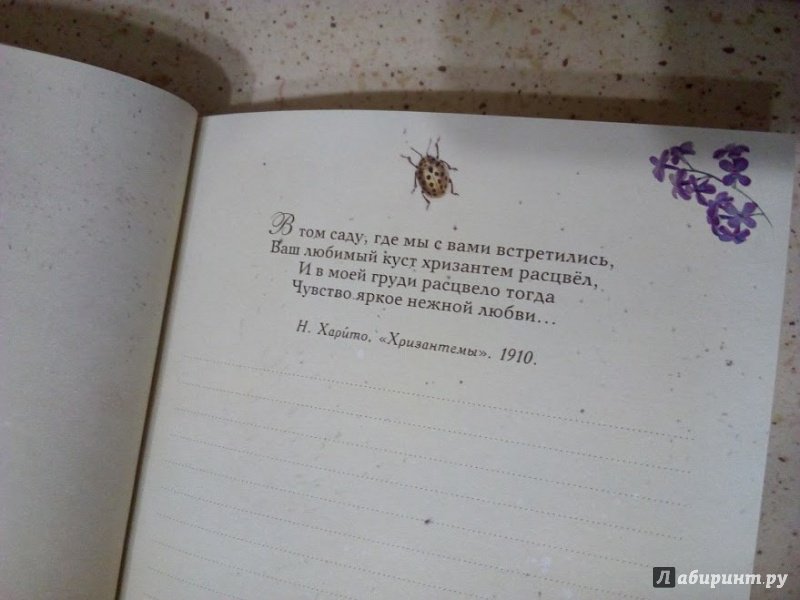 В том саду, где мы с вами встретились,
Ваш любимый куст хризантем расцвёл,
И в моей груди расцвело тогда
Чувство яркое нежной любви...
Н. Хари́то, «Хризантемы». 1910.
Лабиринт.ру